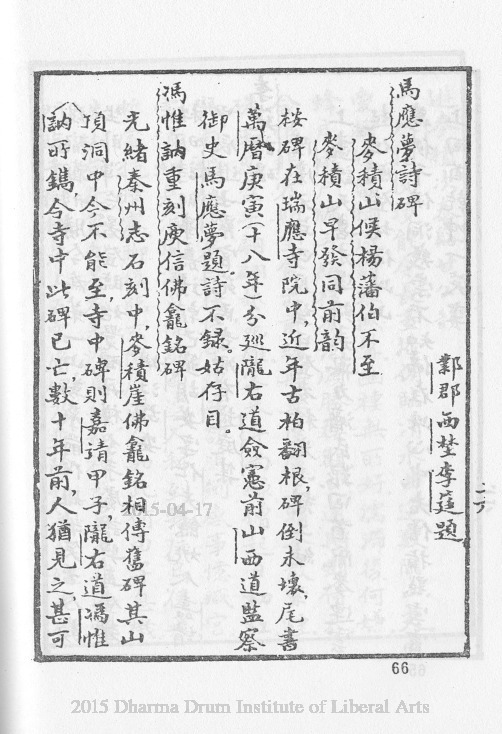 鄴郡西埜李蓘題
馮應夢詩碑
麥積山候楊藩伯不至
麥積山早發同前韵
桉碑在瑞應寺院中,近年古柏翻根,碑倒未壞,尾書
萬曆庚寅(十八年)分巡隴右道僉憲前山西道監察
御史馬應夢題。詩不錄。姑存目。
馮惟訥重刻庾信佛龕銘碑
光緒秦州志石刻中,麥積崖佛龕銘相傳舊碑其山
頂洞中今不能至,寺中碑則嘉靖甲子,隴右道馮惟
訥所鐫今寺中此碑已亡數十年前,人猶見之,甚可
二六
66
2015-04-17
2015 Dharma Drum Institute of Liberal Arts